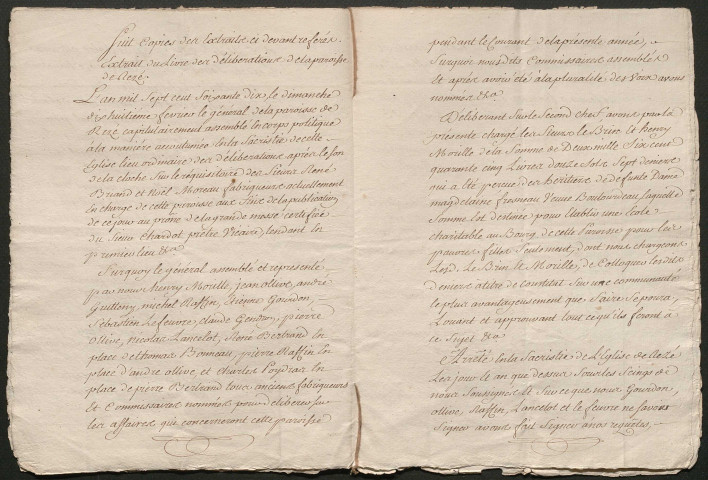 Suit Copies des Extraits ci devant referés.
Extrait du Livre des déliberations de la paroisse
de Rezé.
L'an mil Sept cent Soixante dix le dimanche
dix huitieme fevrier le général de la paroisse de
Rezé capitulairement assemblé En corps politique
à la maniere accoutumée En la Sacristie de cette
Eglise lieu ordinaire des déliberations après le Son
de la cloche Sur le réquisitoire des Sieurs René
Briand et Noël Moreau fabriqueurs actuellement
En charge de cette paroisse aux fins de la publication
de ce jour au prone de la grande messe certifié
du Sieur Chardot prêtre Vicaire tendant En
premier lieu &a.
Surquoy le général assemblé et representé
par nous henry Morille, jean ollive, andré
Guittony, michel Raffin, Etienne Gourdon,
Sébastien Lefeuvre, claude Gendron, pierre
Ollive, nicolas Lancelot, René Bertrand En
place de thomas Bonneau, pierre Raffin En
place d'andré ollive et Charles Poydras En
place de pierre Bertrand tous anciens fabriqueurs
Et Commissaires nommés pour déliberer Sur
les affaires qui concerneront cette paroisse
pendant le Courant de la présente année,
Surquoi nous dits Commissaires assemblés
et après avoir été à la pluralité des Voix avons
nommés &a.
Déliberant Sur le Second chef, avons par la
présente chargé les Sieurs le Brin le henry
Morille de la Somme de Deux mille Six cent
quarante cinq Livres douze Sols Sept deniers
qui a été perçue des héritiers de défunte Dame
magdelaine fresneau Veuve laquelle
Somme Est destinée pour Etablir une Ecole
charitable au Bourg de cette Paroisse pour les
pauvres filles Seulement, dont nous chargeons
Les d. Le Brin & Morille, de Colloquer lesdits
deniers à titre de constitut Sur une communauté
le plus avantageusement que faire Se poura,
Louant et approuvant tout ce qu'ils feront à
ce Sujet &a
Arrêté En la Sacristie de L'Eglise de Rezé
Les jour et an que dessus Sous les Seings de
nous Soussignés Et Sur ce que nous Gourdon,
ollive, Raffin, Lancelot et le feuvre ne Savons
Signer avons fait Signer à nos requetes,